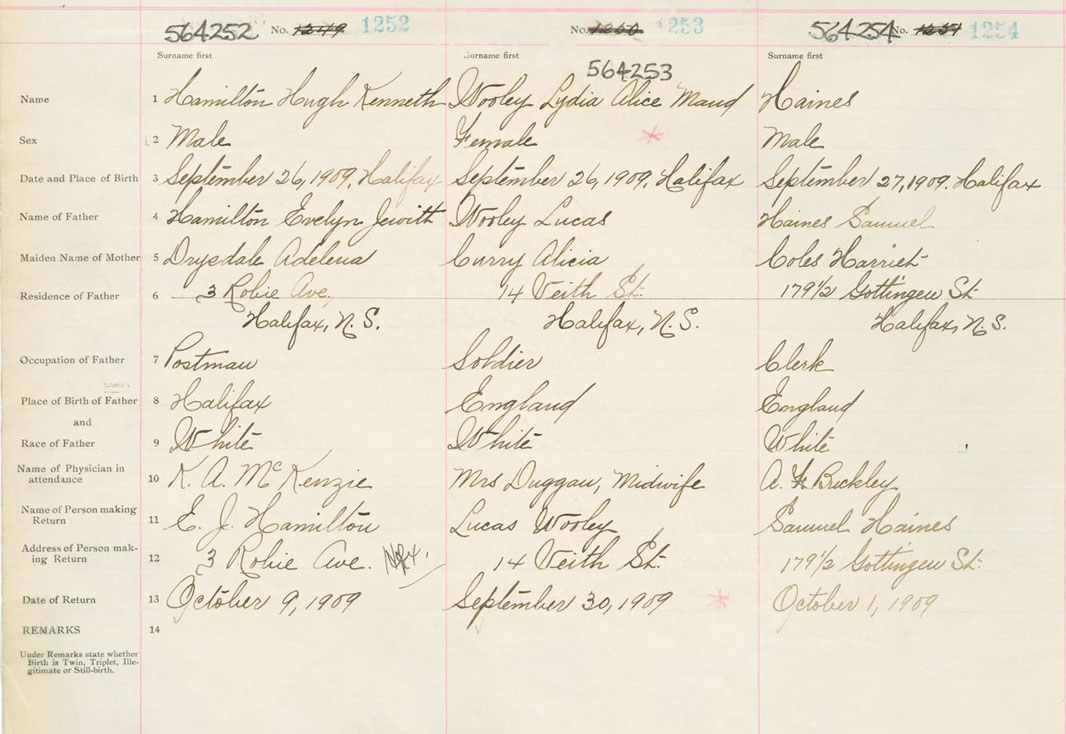 564252 No. 1249 1252 No. 1250 1253 564254 No. 1251 1254
Surname first Surname first Surname first
564253
Name 1 Hamilton Hugh Kenneth Wooley Lydia Alice Maud Haines
Sex 2 Male Female Male
Date and Place of Birth 3 September 26, 1909. Halifax September 26, 1909. Halifax September 27, 1909. Halifax
Name of Father 4 Hamilton Evelyn Jewitt Wooley Lucas Haines Samuel
Maiden Name of Mother 5 Drysdale Adelena Curry Alicia Coles Harriet
Residence of Father 6 3 Robie Ave, 14 Veith St. 179 1/2 Gottingen St.
Halifax, N.S. Halifax, N.S. Halifax, N.S.
Occupation of Father 7 Postman Soldier Clerk
Place of Birth of Father 8 Halifax England England
and
Race of Father 9 White White White
Name of Physician in
attendance 10 K. A. McKenzie Mrs Duggan, Midwife A. F. Buckley
Name of Person making
Return 11 E. J. Hamilton Lucas Wooley Samuel Haines
Address of Person mak-
ing Return 12 3 Robie Ave. Hfx. 14 Veith St. 179 1/2 Gottingen St.
Date of Return 13 October 9, 1909 September 30, 1909 October 1, 1909
REMARKS 14
Under Remarks state whether
Birth is Twin, Triplet, Ille-
gitimate or Still-birth.